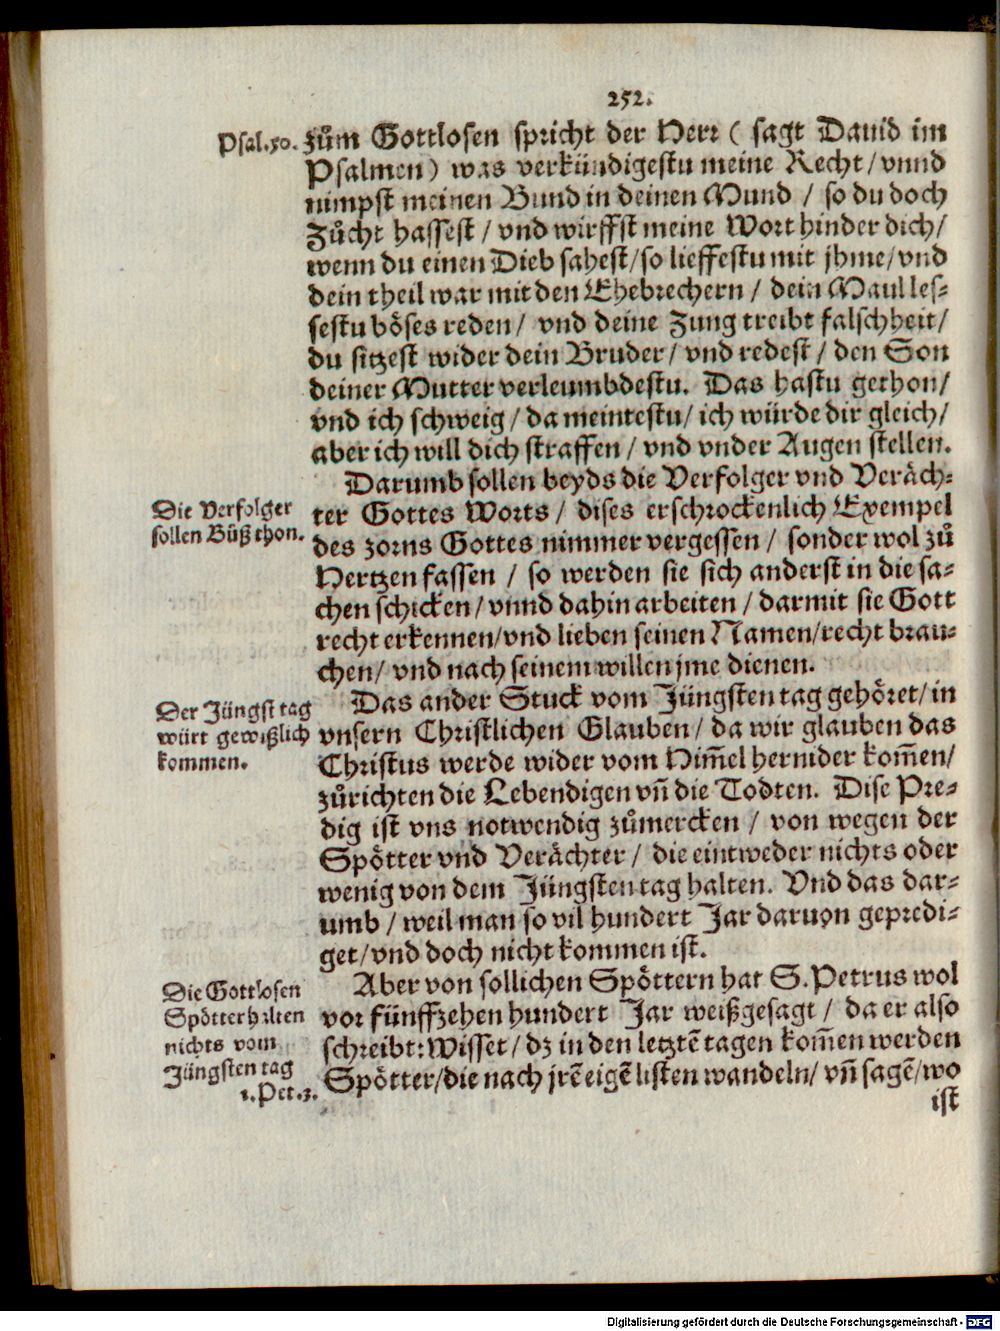 252.
Psal.50. zům Gottlosen spricht der Herr ( sagt Dauid im
Psalmen) was verkündigestu meine Recht/ vnnd
nimpst meinen Bund in deinen Mund / so du doch
Zůcht hassest / vnd wirffst meine Wort hinder dich/
wenn du einen Dieb sahest/ so lieffestu mit jhme/ vnd
dein theil war mit den Ehebrechern / dein Maul les-
sestu böses reden / vnd deine Zung treibt falschheit/
du sitzest wider dein Bruder/ vnd redest / den Son
deiner Mutter verleumbdestu. Das hastu gethon/
vnd ich schweig / da meintestu/ ich würde dir gleich/
aber ich will dich straffen / vnd vnder Augen stellen.
Darumb sollen beyds die Verfolger vnd Veräch-
Die Verfolger
sollen Bůß thon.
ter Gottes Worts / dises erschrockenlich Exempel
des zorns Gottes nimmer vergessen / sonder wol zů
Hertzen fassen / so werden sie sich anderst in die sa-
chen schicken / vnnd dahin arbeiten / darmit sie Gott
recht erkennen/ vnd lieben seinen Namen/ recht brau-
chen/ vnd nach seinem willen jme dienen.
Das ander Stuck vom Jüngsten tag gehöret/ in
Der Jüngst tag
würt gewißlich
kommen.
vnsern Christlichen Glauben / da wir glauben das
Christus werde wider vom Him̄el hernider kom̄en/
zůrichten die Lebendigen vn̄ die Todten. Dise Pre-
dig ist vns notwendig zůmercken / von wegen der
Spötter vnd Verächter / die eintweder nichts oder
wenig von dem Jüngsten tag halten. Vnd das dar-
umb / weil man so vil hundert Jar daruon gepredi-
get/ vnd doch nicht kommen ist.
Aber von sollichen Spöttern hat S. Petrus wol
Die Gottlosen
Spötter halten
nichts vom
Jüngsten tag
1. Pet. 3.
vor fünffzehen hundert Jar weißgesagt / da er also
schreibt: Wisset / dz in den letztē tagen kom̄en werden
Spötter/ die nach jrē eigē listen wandeln/ vn̄ sagē/ wo
ist
Digitalisierung gefördert durch die Deutsche Forschungsgemeinschaft - DFG